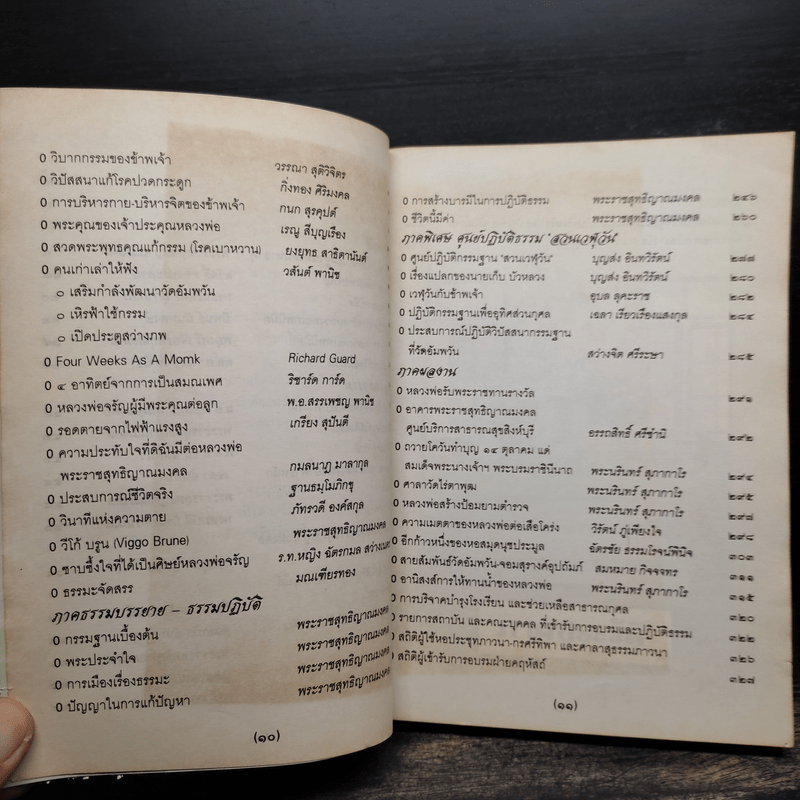 0 วิบากกรรมของข้าพเจ้า วรรณา สุติวิจิตร
0 วิปัสสนาแก้โรคปวดกระดูก กิ่งทอง ศิริมงคล
0 การบริหารกาย-บริหารจิตของข้าพเจ้า กนก สุรคุปต์
0 พระคุณของเจ้าประคุณหลวงพ่อ เรณู สีบุญเรือง
0 สวดพระพุทธคุณแก้กรรม (โรคเบาหวาน) ยงยุทธ สาธิตานันต์
0 คนเก่าเล่าให้ฟัง วสันต์ พานิช
o เสริมกำลังพัฒนาวัดอัมพวัน
o เหิรฟ้าใช้กรรม
o เปิดประตูสว่างภพ
0 Four Weeks As A Momk Richard Guard
0 ๔ อาทิตย์จากการเป็นสมณเพศ ริชาร์ด การ์ด
0 หลวงพ่อจรัญผู้มีพระคุณต่อลูก พ.อ.สรรเพชญ พานิช
0 รอดตายจากไฟฟ้าแรงสูง เกรียง สุปันตี
0 ความประทับใจที่ดิฉันมีต่อหลวงพ่อ
พระราชสุทธิญาณมงคล กมลนาฏ มาลากุล
0 ประสบการณ์ชีวิตจริง ฐานธมฺโมภิกขุ
0 วินาทีแห่งความตาย ภัทรวดี องค์สกุล
0 วีโก้ บรูน (Viggo Brune) พระราชสุทธิญาณมงคล
0 ซาบซึ้งใจที่ได้เป็นศิษย์หลวงพ่อจรัญ ร.ท.หญิง ฉัตรกมล สว่างเนตร
0 ธรรมะจัดสรร มณเฑียรทอง
ภาคธรรมบรรยาย – ธรรมปฏิบัติ
0 กรรมฐานเบื้องต้น พระราชสุทธิญาณมงคล
0 พระประจำใจ พระราชสุทธิญาณมงคล
0 การเมืองเรื่องธรรมะ พระราชสุทธิญาณมงคล
0 ปัญญาในการแก้ปัญหา พระราชสุทธิญาณมงคล
(๑๐)
0 การสร้างบารมีในการปฏิบัติธรรม พระราชสุทธิญาณมงคล ๒๔๖
0 ชีวิตนี้มีค่า พระราชสุทธิญาณมงคล ๒๖๐
ภาคพิเศษ ศูนย์ปฏิบัติธรรม "สวนเวฬุวัน"
0 ศูนย์ปฏิบัติกรรมฐาน "สวนเวฬุวัน" บุญส่ง อินทวิรัตน์
0 เรื่องแปลกของนายเก็บ บัวหลวง บุญส่ง อินทวิรัตน์ ๒๘๐
0 เวฬุวันกับข้าพเจ้า อุบล ลุคะราช ๒๘๒
0 ปฏิบัติกรรมฐานเพื่ออุทิศส่วนกุศล เฉลา เรียวเรืองแสงกุล ๒๘๔
0 ประสบการณ์ปฏิบัติวิปัสสนากรรมฐาน
ที่วัดอัมพวัน สว่างจิต ศรีระษา ๒๘๕
ภาคผลงาน
0 หลวงพ่อรับพระราชทานรางวัล ๒๙๑
0 อาคารพระราชสุทธิญาณมงคล
ศูนย์บริการสาธารณสุขสิงห์บุรี อรรถสิทธิ์ ศรีชำนิ ๒๙๒
0 ถวายโควันทำบุญ ๑๔ ตุลาคม แด่
สมเด็จพระนางเจ้าฯ พระบรมราชินีนาถ พระนรินทร์ สุภากาโร ๒๙๔
0 ศาลาวัดไร่ตาพุฒ พระนรินทร์ สุภากาโร ๒๙๕
0 หลวงพ่อสร้างป้อมยามตำรวจ พระนรินทร์ สุภากาโร ๒๙๗
0 ความเมตตาของหลวงพ่อต่อเสือโคร่ง วิรัตน์ ภู่เพียงใจ ๒๙๘
0 อีกก้าวหนึ่งของหอสมุดนุชประมูล ฉัตรชัย ธรรมโรจน์พินิจ ๓๐๓
0 สายสัมพันธ์วัดอัมพวัน-จอมสุรางค์อุปถัมภ์ สมหมาย กิจจจทร ๓๑๑
0 อานิสงส์การให้ทานน้ำของหลวงพ่อ พระนรินทร์ สุภากาโร ๓๑๕
0 การบริจาคบำรุงโรงเรียน และช่วยเหลือสาธารณกุศล ๓๒๐
0 รายการสถาบัน และคณะบุคคล ที่เข้ารับการอบรมและปฏิบัติธรรม ๓๒๒
0 สถิติผู้ใช้หอประชุมภาวนา-กรศรีทิพา และศาลาสุธรรมภาวนา ๓๒๖
0 สถิติผู้เข้ารับการอบรมฝ่ายคฤหัสถ์ ๓๒๗
(๑๑)